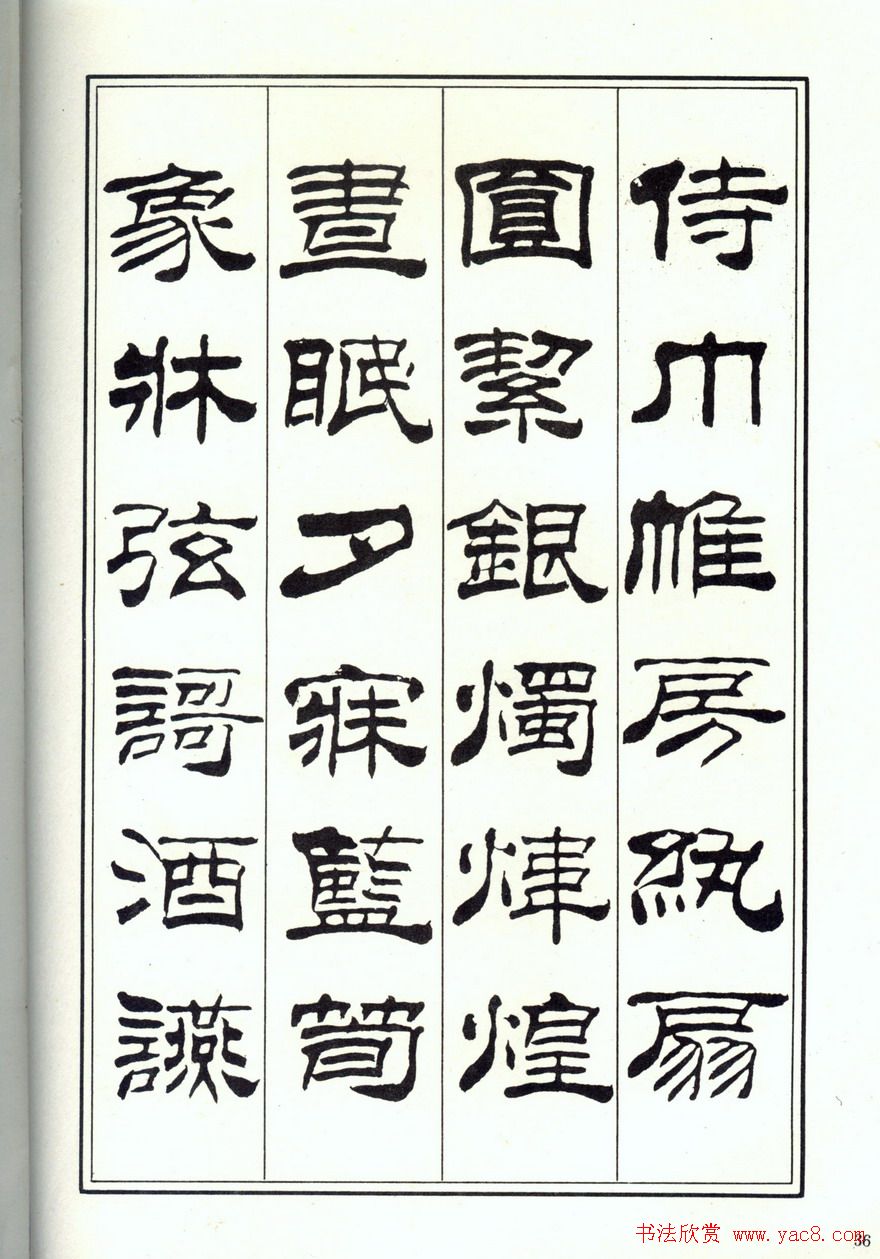 侍巾帷房紈扇
圓絜銀燭煒煌
晝眠夕寐藍筍
象牀弦謌酒讌
书法欣赏 www.yac8.com
36